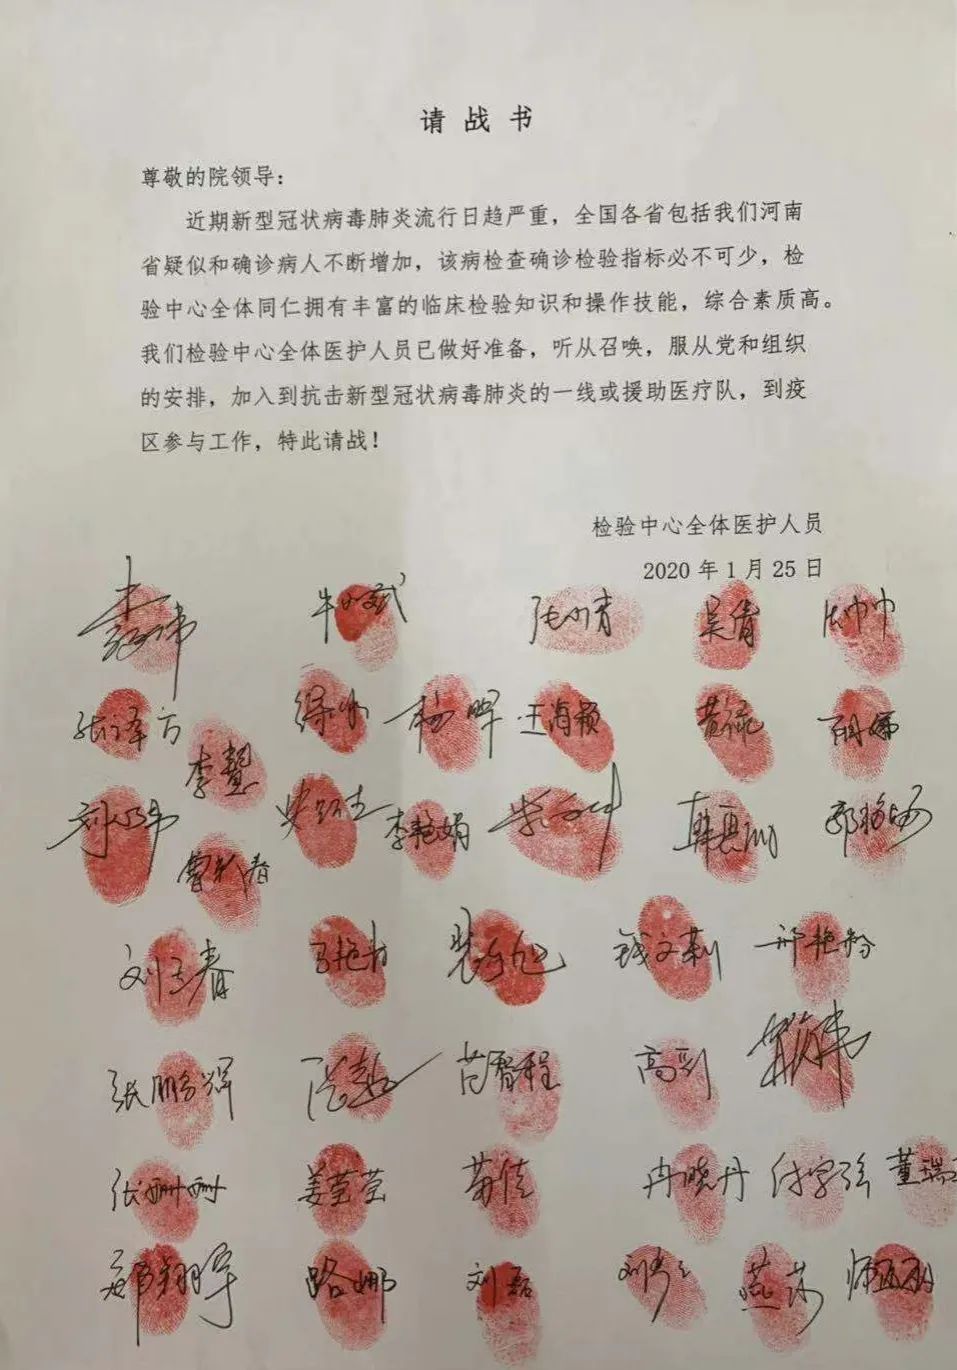 请战书
尊敬的院领导：
近期新型冠状病毒肺炎流行日趋严重，全国各省包括我们河南
省疑似和确诊病人不断增加，该病检查确诊检验指标必不可少，检
验中心全体同仁拥有丰富的临床检验知识和操作技能，综合素质高。
我们检验中心全体医护人员已做好准备，听从召唤，服从党和组织
的安排，加入到抗击新型冠状病毒肺炎的一线或援助医疗队，到疫
区参与工作，特此请战！
检验中心全体医护人员
2020年1月25日
牛小斌 吴倩
张译方 杨晖 王海颖
李慧
李艳娟
刘彦春 钱文莉 邢艳粉
张鹏辉 高剑
张珊珊 姜莹莹 冉晓丹 付寒强 董瑞
郑翔宇 路娜 刘磊 燕莎